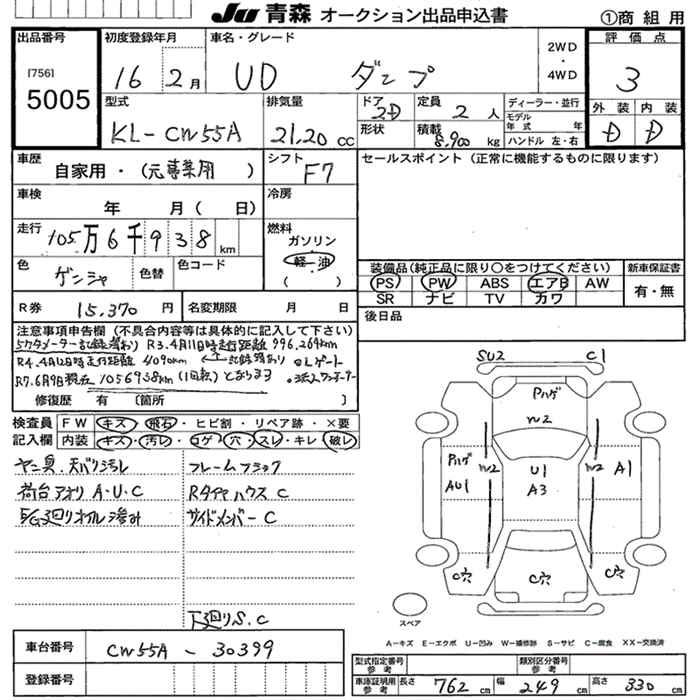 JU 青森 オークション出品申込書
①商組用
出品番号
[756]
5005
初度登録年月
16年2月
車名・グレード
UD ダンプ
2WD
・
4WD
評価点
3
外装 内装
D D
型式
KL-CW55A
排気量
21,20 cc
ドア
2D
形状
定員
2人
積載
8,900 kg
ディーラー・並行
モデル年式 年
ハンドル 左・右
車歴
自家用・(元事業用)
シフト
F7
セールスポイント(正常に機能するものに限ります)
車検
年 月( 日)
冷房
走行
105万6千938km
燃料
ガソリン
軽油
( )
色
ゲンシャ
色替
色コード
装備品(純正品に限り○をつけてください)
PS PW ABS エアB AW
SR ナビ TV カワ
新車保証書
有・無
R券 15,370円
名変期限 月 日
後日品
注意事項申告欄(不具合内容等は具体的に記入して下さい)
R3.4月11日時走行距離 996,269km
R4.4月12日時走行距離 4090km
R7.6月9日現在 1056938km (1回転)となります
修復歴 有 〔箇所 〕
検査員記入欄
FW キズ・飛石・ヒビ割・リペア跡・×要
内装 キズ・汚レ・コゲ・穴・スレ・キレ・破レ
ヤニ臭.天バリ汚レ
フレームフラック
荷台アオリA・U・C
RタイヤハウスC
E/G廻りオイル滲み
サイドメンバーC
下廻りS.C
SU2
C1
Pハゲ
W2
Pハゲ
AU1
W2
U1
A3
W2
A1
C穴
C穴
C穴
スペア
A-キズ E-エクボ U-凹み W-補修跡 S-サビ C-腐食 XX-交換済
車台番号
CW55A - 30399
登録番号
型式指定番号参考
類別区分番号参考
車庫証明用参考
長さ 762cm
幅 249cm
高さ 330cm